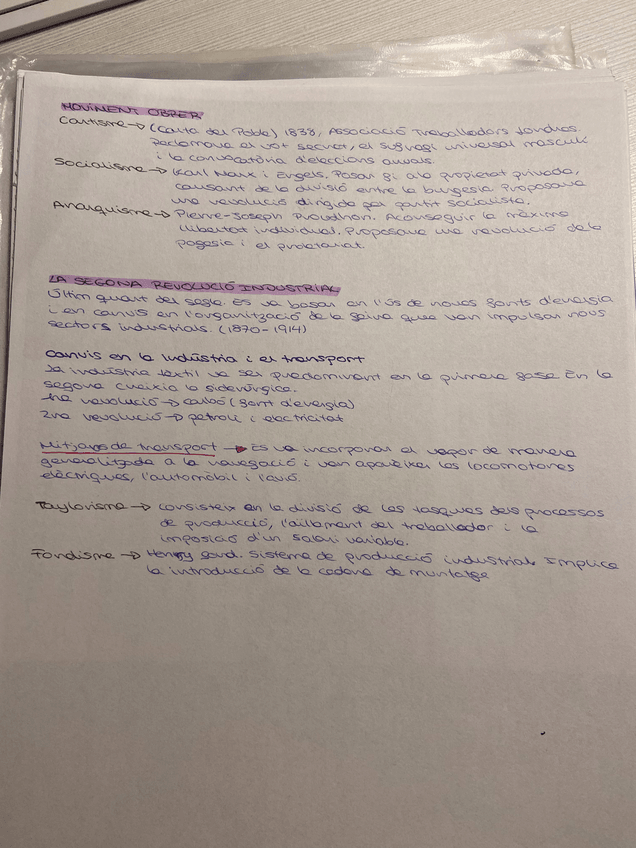 MOVIMENT OBRER
Cartisme → (Carta del Poble) 1838, Associació Treballadors Londres.
Reclamava el vot secret, el sufragi universal masculí
i la convocatòria d'eleccions anuals.
Socialisme → Karl Marx i Engels. Posar fi a la propietat privada,
causant de la divisió entre la burgesia. Proposava
una revolució dirigida per partit socialista.
Anarquisme → Pierre-Joseph Proudhon. Aconseguir la màxima
llibertat individual. Proposava una revolució de la
pagesia i el proletariat.
LA SEGONA REVOLUCIÓ INDUSTRIAL
Últim quart del segle. Es va basar en l'ús de noves fonts d'energia
i en canvis en l'organització de la feina que van impulsar nous
sectors industrials. (1870-1914)
Canvis en la indústria i el transport
La indústria tèxtil va ser predominant en la primera fase. En la
segona creixia la siderúrgica.
1ra revolució → carbó (font d'energia)
2na revolució → petroli i electricitat
Mitjans de transport → Es va incorporar el vapor de manera
generalitzada a la navegació i van aparèixer les locomotores
elèctriques, l'automòbil i l'avió.
Taylorisme → consisteix en la divisió de les tasques dels processos
de producció, l'aïllament del treballador i la
imposició d'un salari variable.
Fordisme → Henry Ford. Sistema de producció industrial. Implica
la introducció de la cadena de muntatge